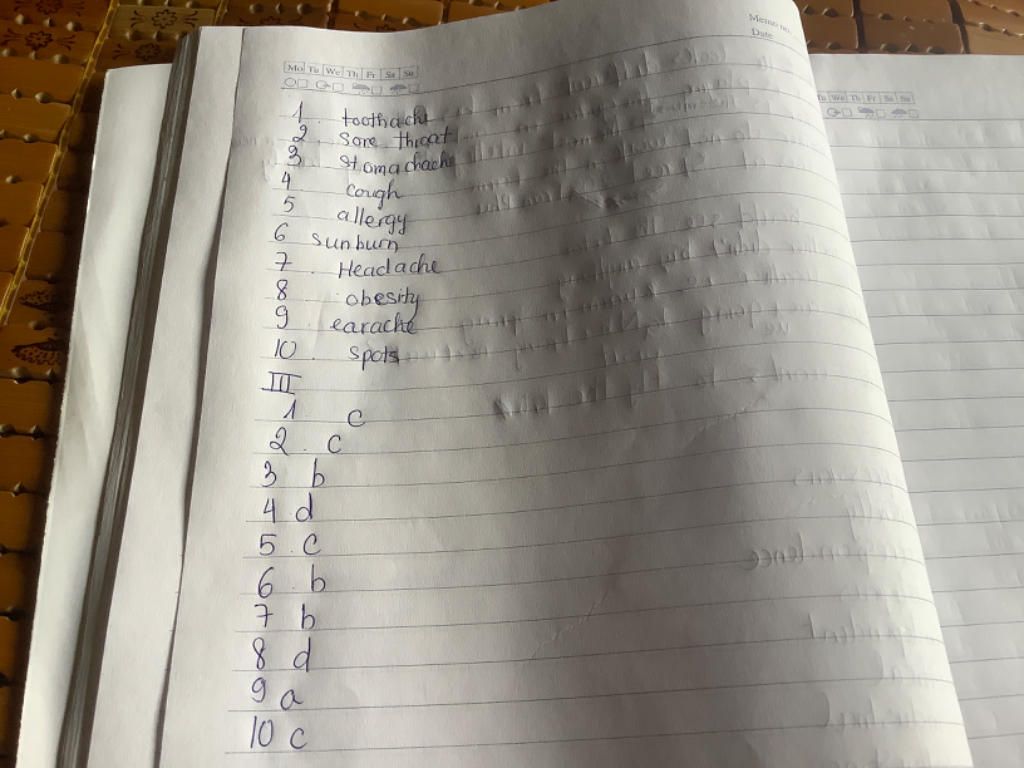 Memo no.
Date
Mo Tu We Th Fr Sa Su
We Th Fr Sa Su
1. toothache
2. Sore throat
3 stomachache
4 cough
5 allergy
6 sunburn
7. Headache
8. obesity
9 earache
10. spots
III
1. c
2. c
3 b
4 d
5. c
6. b
7 b
8 d
9 a
10 c